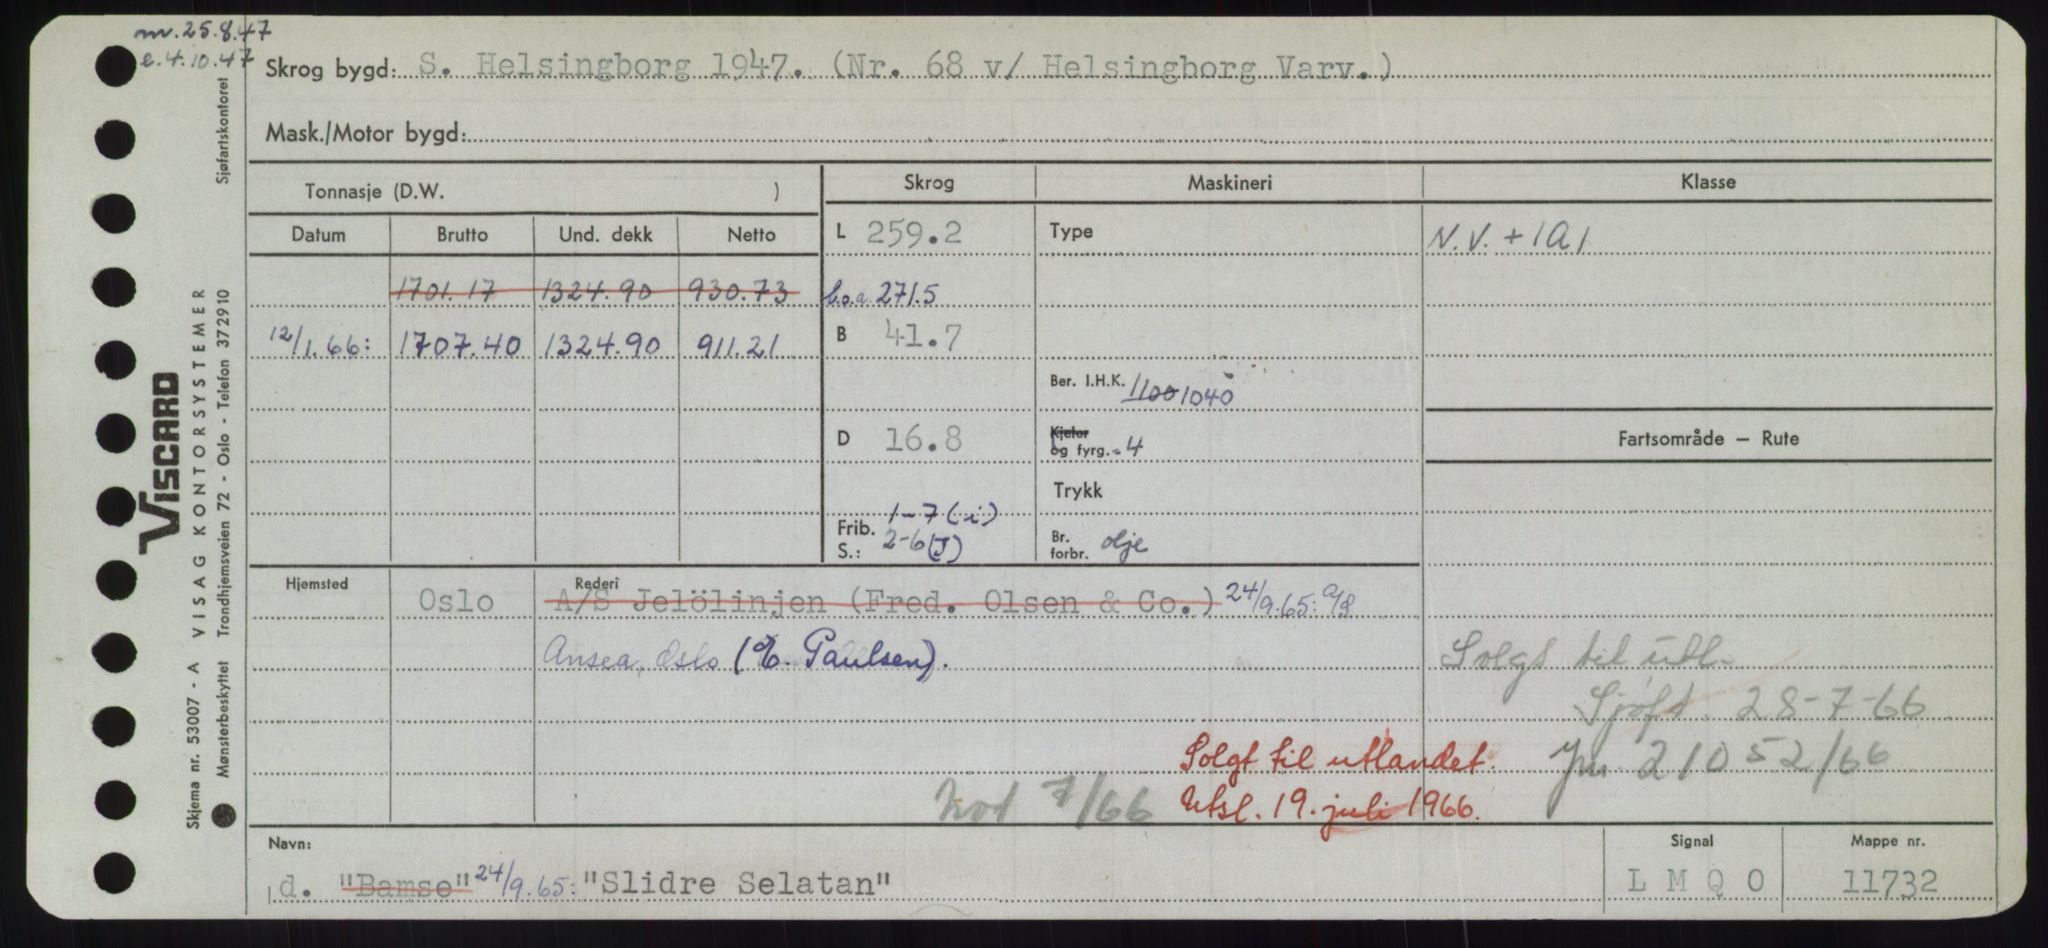 nv. 25.8.47
e. 4.10.47
Skrog bygd: S. Helsingborg 1947. (Nr. 68 v/ Helsingborg Varv.)
Mask./Motor bygd:
Tonnasje (D.W. )
Skrog
Maskineri
Klasse
Datum Brutto Und. dekk Netto
L 259.2
Type
N.V. + 1A1
1701.17 1324.90 930.73
l.o.a. 271.5
12/1.66: 1707.40 1324.90 911.21
B 41.7
Ber. I.H.K. 1100 1040
D 16.8
Kjeler
og fyrg. - 4
Fartsområde – Rute
Trykk
Frib. 1-7 (i)
S.: 2-6 (J)
Br.
forbr. olje
Hjemsted Oslo
Rederi
A/S Jelölinjen (Fred. Olsen & Co.) 24/9.65: A/S
Ansea, Oslo (E. Paulsen).
Solgt til utl.
Sjøft. 28-7-66
Solgt til utlandet.
jnr. 21052/66
Not 7/66
Utsl. 19. juli 1966.
Navn:
d. "Bamse" 24/9.65: "Slidre Selatan"
Signal
L M Q O
Mappe nr.
11732
Skjema nr. 53007 - A VISAG KONTORSYSTEMER
Mønsterbeskyttet Trondhjemsveien 72 - Oslo - Telefon 372910
Sjøfartskontoret
VISCARD